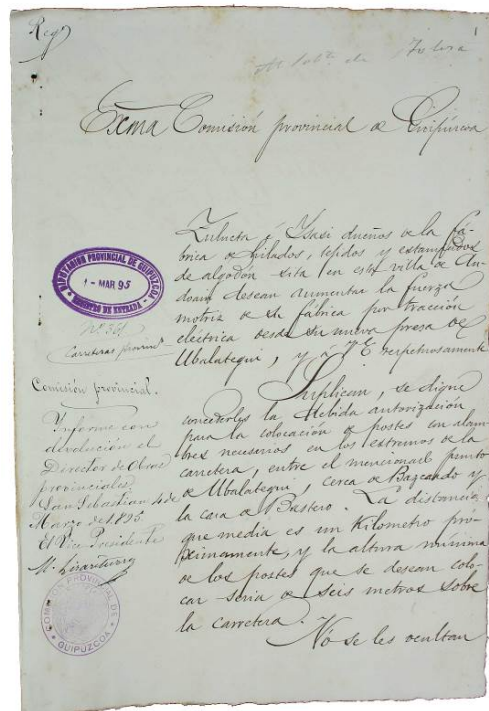 Reg
1
Excma Comisión provincial de Guipúzcoa
Zulueta é Ysasi dueños de la fá-
brica de hilados, tejidos y estampados
de algodon sita en esta villa de An-
doain desean aumentar la fuerza
motriz de su fábrica por tracción
eléctrica desde su nueva presa de
Ubalategui, y a V.E. respetuosamente
Suplican, se digne
concederles la debida autorización
para la colocación de postes con alam-
bres necesarios en los extremos de la
carretera, entre el mencionado punto
de Ubalategui, cerca de Bazcardo y
la casa de Bastero. La distancia
que media es un Kilometro pró-
ximamente, y la altura mínima
de los postes que se desean colo-
car seria de seis metros sobre
la carretera.
No se les ocultan
DIPUTACION PROVINCIAL DE GUIPUZCOA
1 - MAR 95
REGISTRO DE ENTRADA
Carreteras
Comisión provincial.
Informe con
devolución el
Director de Obras
provinciales.
San Sebastian 4 de
Marzo de 1895
El Vice Presidente
COMISION PROVINCIAL DE
GUIPUZCOA